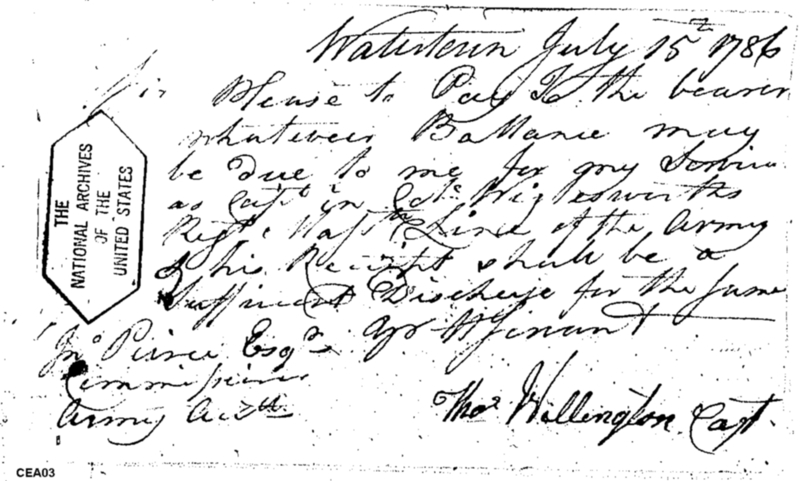 Watertown July 15th 1786
Sir Please to Pay To the bearer
whatever Ballance may
be due to me for my Service
as Capt in Col. Wiglesworths
Regt. Masth Line of the Army
& his Receipt shall be a
Sufficient Discharge for the Same
Jno Pierce Esqr
Commissioner
Army Acts.
Thos Wellington Capt.
THE
NATIONAL ARCHIVES
OF THE
UNITED STATES
CEA03